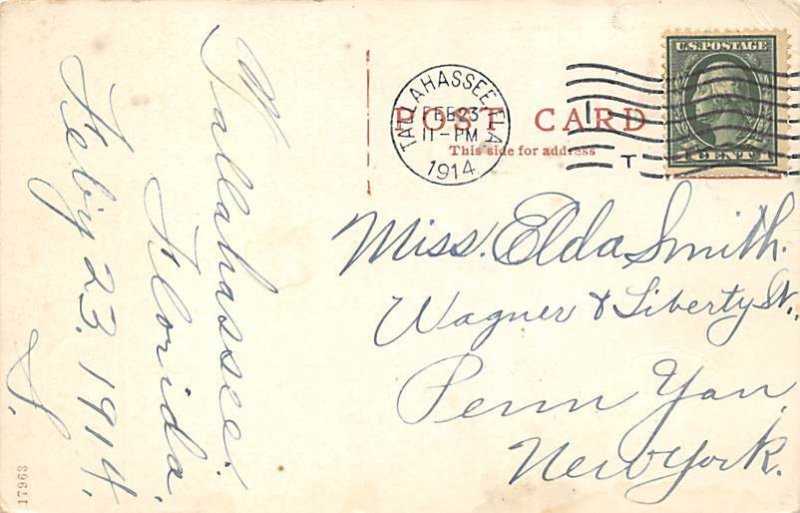 Tallahassee.
Florida.
Feb'y 23. 1914.
S.
17963
TALLAHASSEE, FLA
FEB 23
11-PM
1914
POST CARD
This side for address
T
U.S. POSTAGE
1 CENT 1
Miss. Elda Smith.
Wagner & Liberty St.,
Penn Yan,
New York.